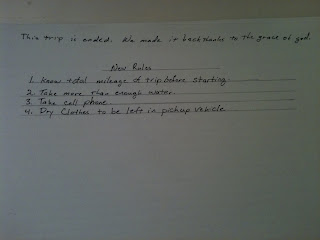 This trip is ended. We made it back thanks to the grace of god.
New Rules
1. Know total mileage of trip before starting.
2. Take more than enough water.
3. Take cell phone.
4. Dry clothes to be left in pickup vehicle